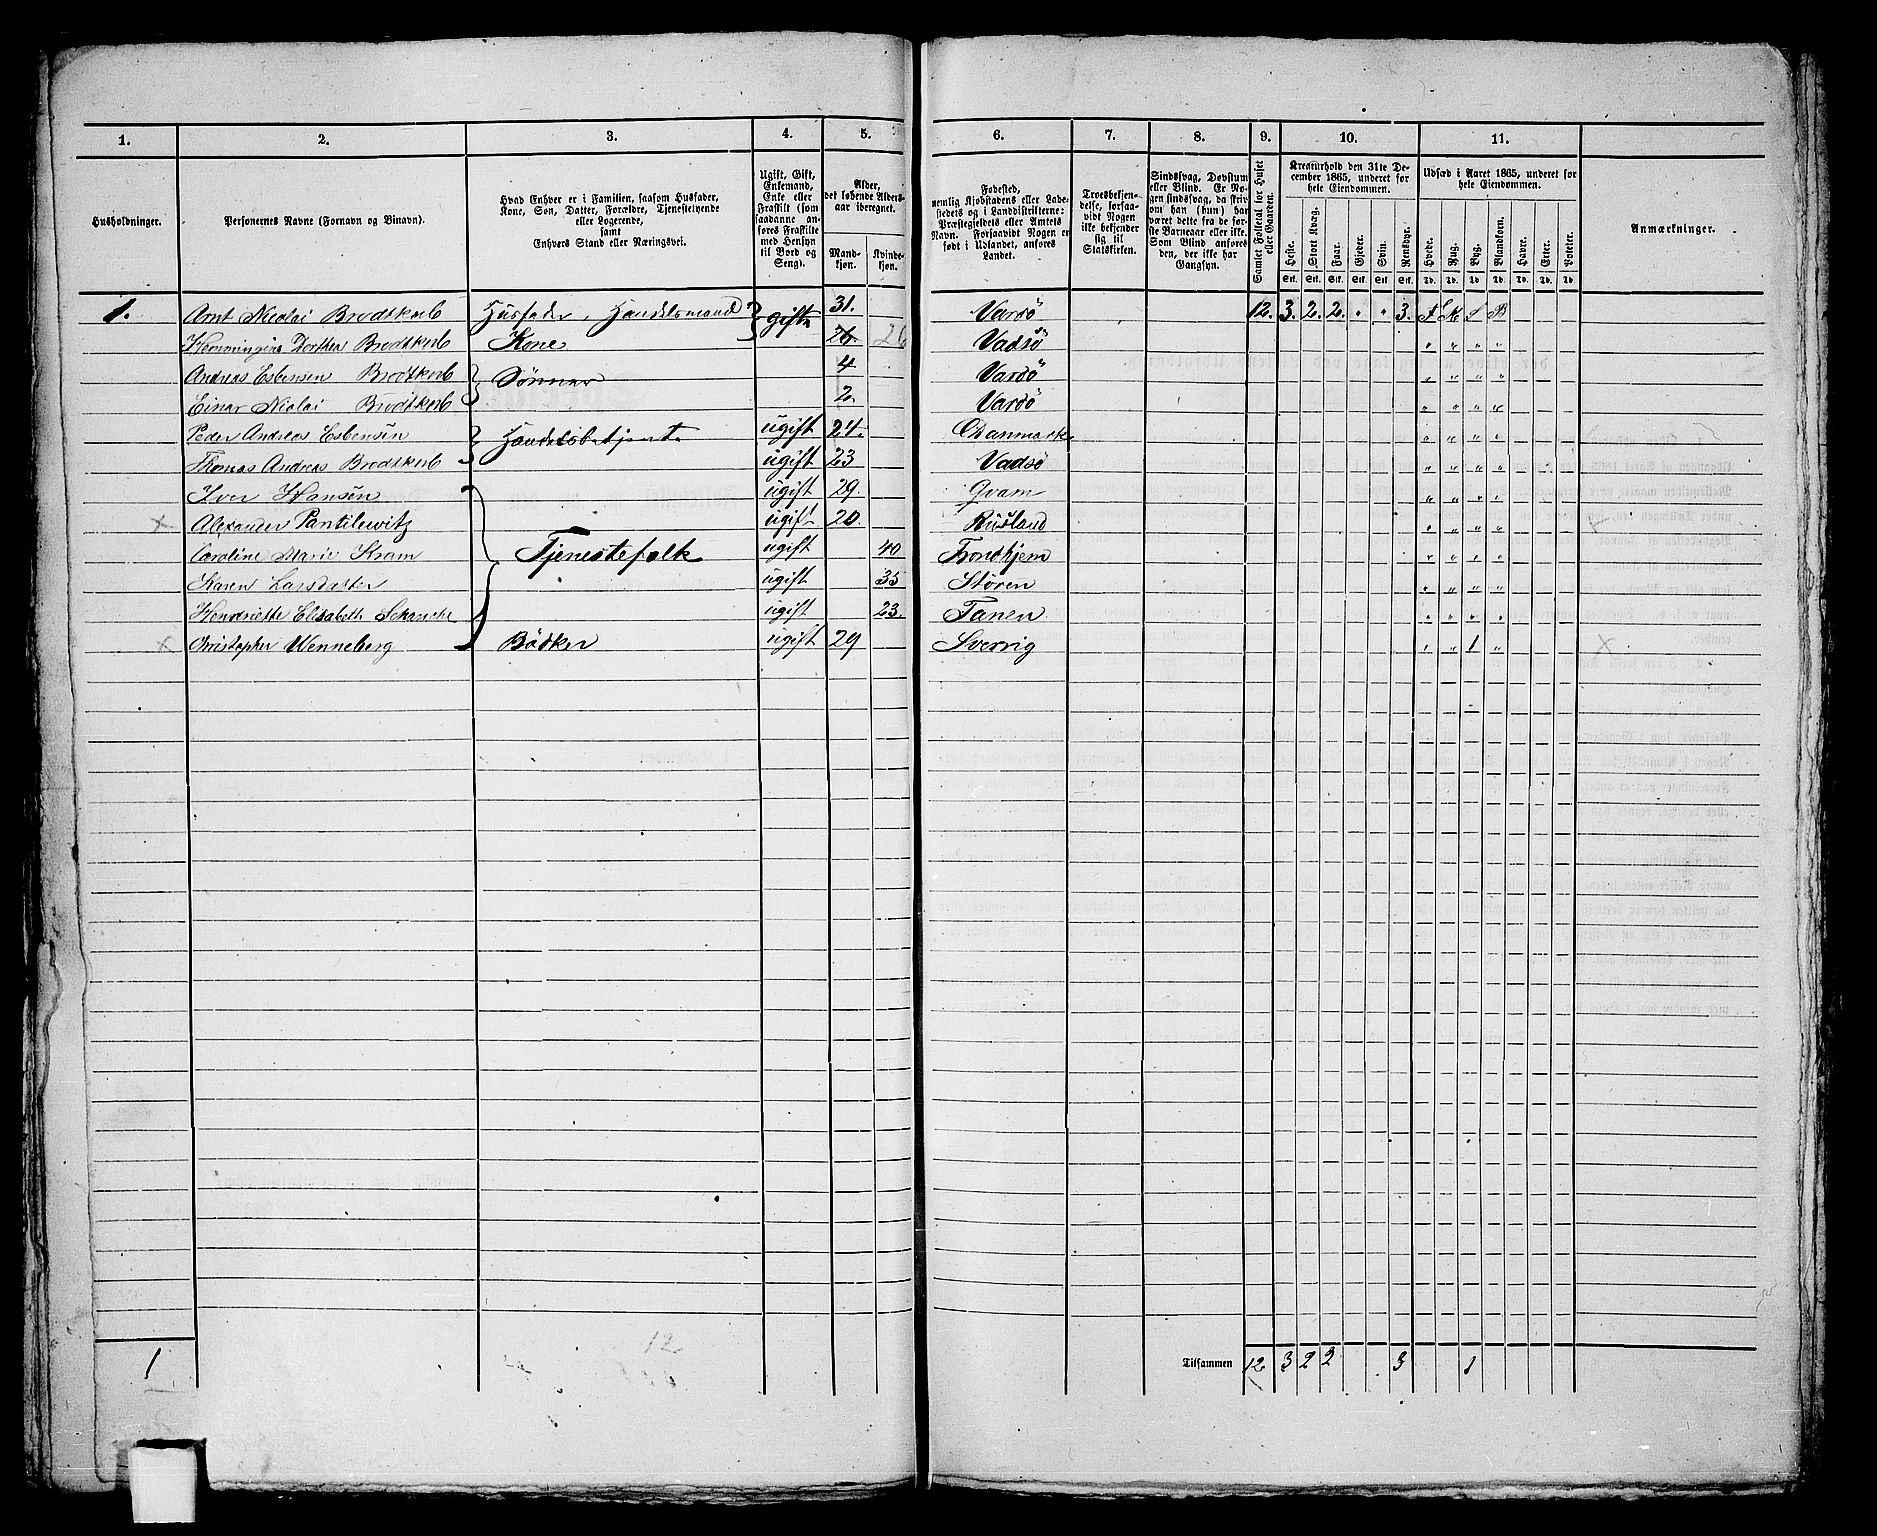 1. 2. 3. 4. 5. 6. 7. 8. 9. 10. 11.
Husholdninger.
Personernes Navne (Fornavn og Binavn).
Hvad Enhver er i Familien, saasom Husfader,
Kone, Søn, Datter, Forældre, Tjenestetyende
eller Logerende,
samt
Enhvers Stand eller Næringsvei.
Ugift, Gift,
Enkemand,
Enke eller
Fraskilt (som
saadanne an-
føres Fraskilte
med Hensyn
til Bord og
Seng).
Alder,
det løbende Alders-
aar iberegnet.
Mand-
kjøn.
Kvinde-
kjøn.
Fødested,
nemlig Kjøbstadens eller Lade-
stedets og i Landdistrikterne:
Præstegjeldets eller Amtets
Navn. Forsaavidt Nogen er
født i Udlandet, anføres
Landet.
Troesbekjen-
delse, forsaa-
vidt Nogen
ikke bekjender
sig til
Statskirken.
Sindssvag, Døvstum
eller Blind. Er No-
gen sindssvag, da skriv
om han (hun) har
været dette fra de før-
ste Barneaar eller ikke.
Som Blind anføres
den, der ikke har
Gangsyn.
Samlet Folketal for Huset
eller Gaarden.
Kreaturhold den 31te De-
cember 1865, underet for
hele Eiendommen.
Heste. Stort Kvæg. Faar. Gjeder. Svin. Rensdyr.
Stk. Stk. Stk. Stk. Stk. Stk.
Udsæd i Aaret 1865, underet for
hele Eiendommen.
Hvede. Rug. Byg. Blandkorn. Havre. Erter. Poteter.
Td. Td. Td. Td. Td. Td. Td.
Anmærkninger.
1. Arnt Nicolai Brodtkorb Husfader, Handelsmand gifte 31. Vardö 12. 3. 2. 2. " " 3.
Hemmingine Dorthea Brodtkorb Kone 26 26 Vadsö
Andreas Esbensen Brodtkorb Sönner 4 Vardö
Einar Nicolai Brodtkorb 2. Vardö
Peder Andreas Esbensen Handelsbetjente ugift 24.
Thomas Andreas Brodtkorb ugift 23 Vadsö
Iver Hansen ugift 29. Qvam
x Alexander Pantilewitz ugift 20. Rusland x
Caroline Marie Kram Tjenestefolk ugift 40 Trondhjem
Karen Larsdatter ugift 35 Stören
Henriette Elisabeth Schanche ugift 23. Tanen
x Christopher Wenneberg Bödker ugift 29 Sverrig 1 x
12
1
Tilsammen 12 3 2 2 3 1